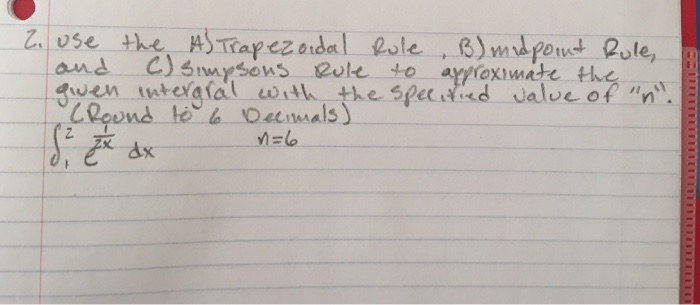 2. Use the A) Trapezoidal Rule, B) midpoint Rule,
and C) Simpsons Rule to approximate the
given intergral with the specified value of "n".
(Round to 6 Decimals)
∫₁² e^(1/2x) dx n=6